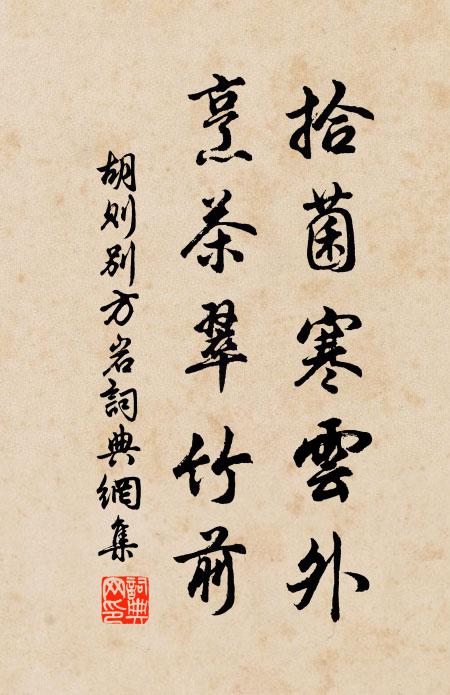 拾菌寒雲外
烹茶翠竹前
胡则别方岩詞典網集
詞典網印